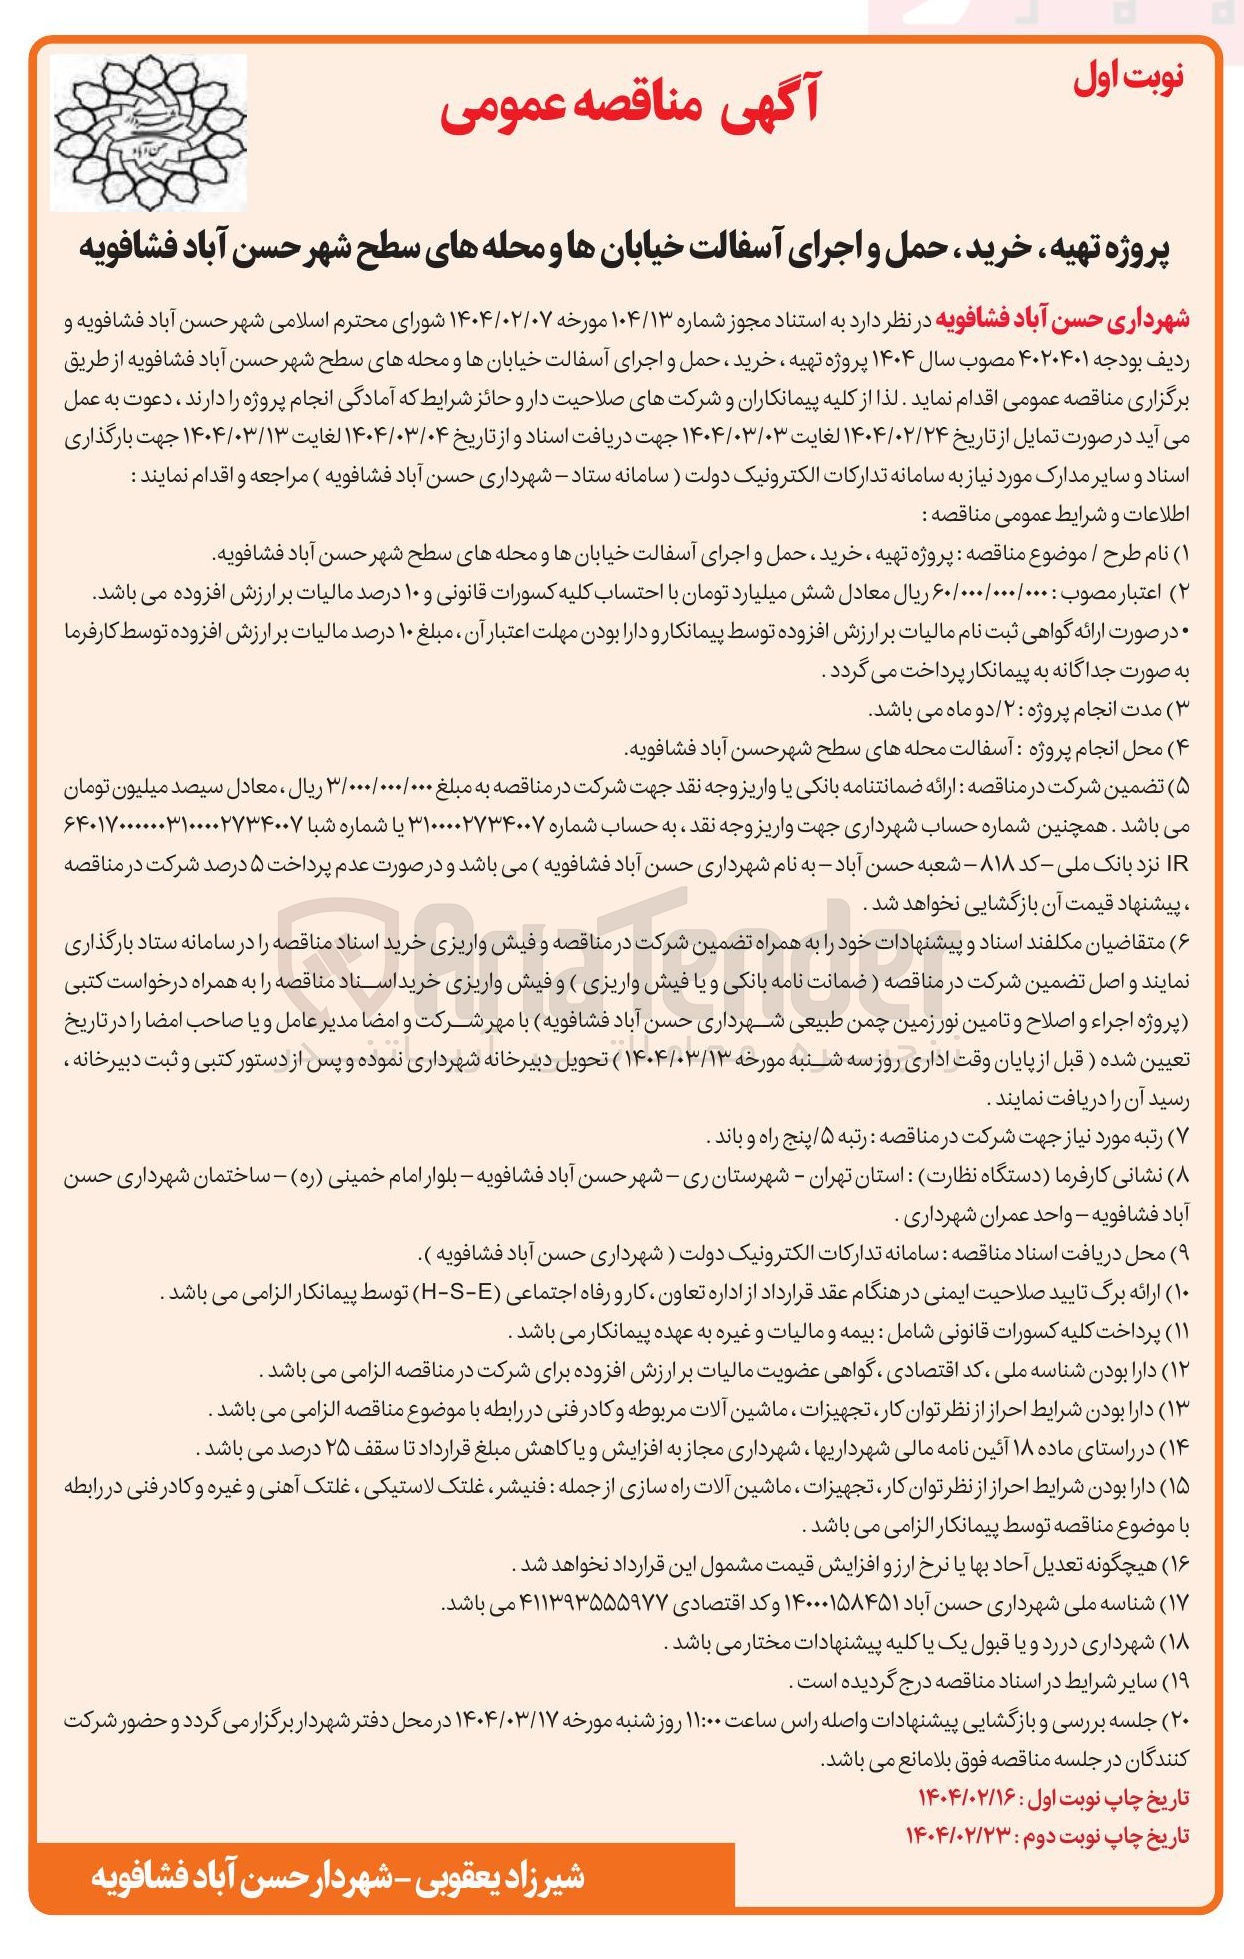 نوبت اول
آگهی مناقصه عمومی
پروژه تهیه ، خرید ، حمل و اجرای آسفالت خیابان ها و محله های سطح شهر حسن آباد فشافویه
شهرداری حسن آباد فشافویه در نظر دارد به استناد مجوز شماره ۱۰۴/۱۳ مورخه ۱۴۰۴/۰۲/۰۷ شورای محترم اسلامی شهر حسن آباد فشافویه و
ردیف بودجه ۴۰۲۰۴۰۱ مصوب سال ۱۴۰۴ پروژه تهیه ، خرید ، حمل و اجرای آسفالت خیابان ها و محله های سطح شهر حسن آباد فشافویه از طریق
برگزاری مناقصه عمومی اقدام نماید . لذا از کلیه پیمانکاران و شرکت های صلاحیت دار و حائز شرایط که آمادگی انجام پروژه را دارند ، دعوت به عمل
می آید در صورت تمایل از تاریخ ۱۴۰۴/۰۲/۲۴ لغایت ۱۴۰۴/۰۳/۰۳ جهت دریافت اسناد و از تاریخ ۱۴۰۴/۰۳/۰۴ لغایت ۱۴۰۴/۰۳/۱۳ جهت بارگذاری
اسناد و سایر مدارک مورد نیاز به سامانه تدارکات الکترونیک دولت ( سامانه ستاد – شهرداری حسن آباد فشافویه ) مراجعه و اقدام نمایند :
اطلاعات و شرایط عمومی مناقصه :
۱) نام طرح / موضوع مناقصه : پروژه تهیه ، خرید ، حمل و اجرای آسفالت خیابان ها و محله های سطح شهر حسن آباد فشافویه.
۲) اعتبار مصوب : ۶۰/۰۰۰/۰۰۰/۰۰۰ ریال معادل شش میلیارد تومان با احتساب کلیه کسورات قانونی و ۱۰ درصد مالیات بر ارزش افزوده می باشد.
• در صورت ارائه گواهی ثبت نام مالیات بر ارزش افزوده توسط پیمانکار و دارا بودن مهلت اعتبار آن ، مبلغ ۱۰ درصد مالیات بر ارزش افزوده توسط کارفرما
به صورت جداگانه به پیمانکار پرداخت می گردد .
۳) مدت انجام پروژه : ۲/دو ماه می باشد.
۴) محل انجام پروژه : آسفالت محله های سطح شهرحسن آباد فشافویه.
۵) تضمین شرکت در مناقصه : ارائه ضمانتنامه بانکی یا واریز وجه نقد جهت شرکت در مناقصه به مبلغ ۳/۰۰۰/۰۰۰/۰۰۰ ریال ، معادل سیصد میلیون تومان
می باشد . همچنین شماره حساب شهرداری جهت واریز وجه نقد ، به حساب شماره ۳۱۰۰۰۰۲۷۳۴۰۰۷ یا شماره شبا ۶۴۰۱۷۰۰۰۰۰۰۳۱۰۰۰۰۲۷۳۴۰۰۷
IR نزد بانک ملی – کد ۸۱۸ – شعبه حسن آباد – به نام شهرداری حسن آباد فشافویه ) می باشد و در صورت عدم پرداخت ۵ درصد شرکت در مناقصه
، پیشنهاد قیمت آن بازگشایی نخواهد شد .
۶) متقاضیان مکلفند اسناد و پیشنهادات خود را به همراه تضمین شرکت در مناقصه و فیش واریزی خرید اسناد مناقصه را در سامانه ستاد بارگذاری
نمایند و اصل تضمین شرکت در مناقصه ( ضمانت نامه بانکی و یا فیش واریزی ) و فیش واریزی خریداسناد مناقصه را به همراه درخواست کتبی
(پروژه اجراء و اصلاح و تامین نور زمین چمن طبیعی شهرداری حسن آباد فشافویه) با مهر شرکت و امضا مدیر عامل و یا صاحب امضا را در تاریخ
تعیین شده ( قبل از پایان وقت اداری روز سه شنبه مورخه ۱۴۰۴/۰۳/۱۳ ) تحویل دبیرخانه شهرداری نموده و پس از دستور کتبی و ثبت دبیرخانه ،
رسید آن را دریافت نمایند .
۷) رتبه مورد نیاز جهت شرکت در مناقصه : رتبه ۵/پنج راه و باند .
۸) نشانی کارفرما (دستگاه نظارت) : استان تهران - شهرستان ری – شهر حسن آباد فشافویه – بلوار امام خمینی (ره) – ساختمان شهرداری حسن
آباد فشافویه – واحد عمران شهرداری .
۹) محل دریافت اسناد مناقصه : سامانه تدارکات الکترونیک دولت ( شهرداری حسن آباد فشافویه ).
۱۰) ارائه برگ تایید صلاحیت ایمنی در هنگام عقد قرارداد از اداره تعاون ، کار و رفاه اجتماعی (H-S-E) توسط پیمانکار الزامی می باشد .
۱۱) پرداخت کلیه کسورات قانونی شامل : بیمه و مالیات و غیره به عهده پیمانکار می باشد .
۱۲) دارا بودن شناسه ملی ، کد اقتصادی ، گواهی عضویت مالیات بر ارزش افزوده برای شرکت در مناقصه الزامی می باشد .
۱۳) دارا بودن شرایط احراز از نظر توان کار ، تجهیزات ، ماشین آلات مربوطه و کادر فنی در رابطه با موضوع مناقصه الزامی می باشد .
۱۴) در راستای ماده ۱۸ آئین نامه مالی شهرداریها ، شهرداری مجاز به افزایش و یا کاهش مبلغ قرارداد تا سقف ۲۵ درصد می باشد .
۱۵) دارا بودن شرایط احراز از نظر توان کار ، تجهیزات ، ماشین آلات راه سازی از جمله : فنیشر ، غلتک لاستیکی ، غلتک آهنی و غیره و کادر فنی در رابطه
با موضوع مناقصه توسط پیمانکار الزامی می باشد .
۱۶) هیچگونه تعدیل آحاد بها یا نرخ ارز و افزایش قیمت مشمول این قرارداد نخواهد شد .
۱۷) شناسه ملی شهرداری حسن آباد ۱۴۰۰۰۱۵۸۴۵۱ و کد اقتصادی ۴۱۱۳۹۳۵۵۵۹۷۷ می باشد.
۱۸) شهرداری در رد و یا قبول یک یا کلیه پیشنهادات مختار می باشد .
۱۹) سایر شرایط در اسناد مناقصه درج گردیده است .
۲۰) جلسه بررسی و بازگشایی پیشنهادات واصله راس ساعت ۱۱:۰۰ روز شنبه مورخه ۱۴۰۴/۰۳/۱۷ در محل دفتر شهردار برگزار می گردد و حضور شرکت
کنندگان در جلسه مناقصه فوق بلامانع می باشد.
تاریخ چاپ نوبت اول : ۱۴۰۴/۰۲/۱۶
تاریخ چاپ نوبت دوم : ۱۴۰۴/۰۲/۲۳
شیرزاد یعقوبی – شهردار حسن آباد فشافویه
AriaTender